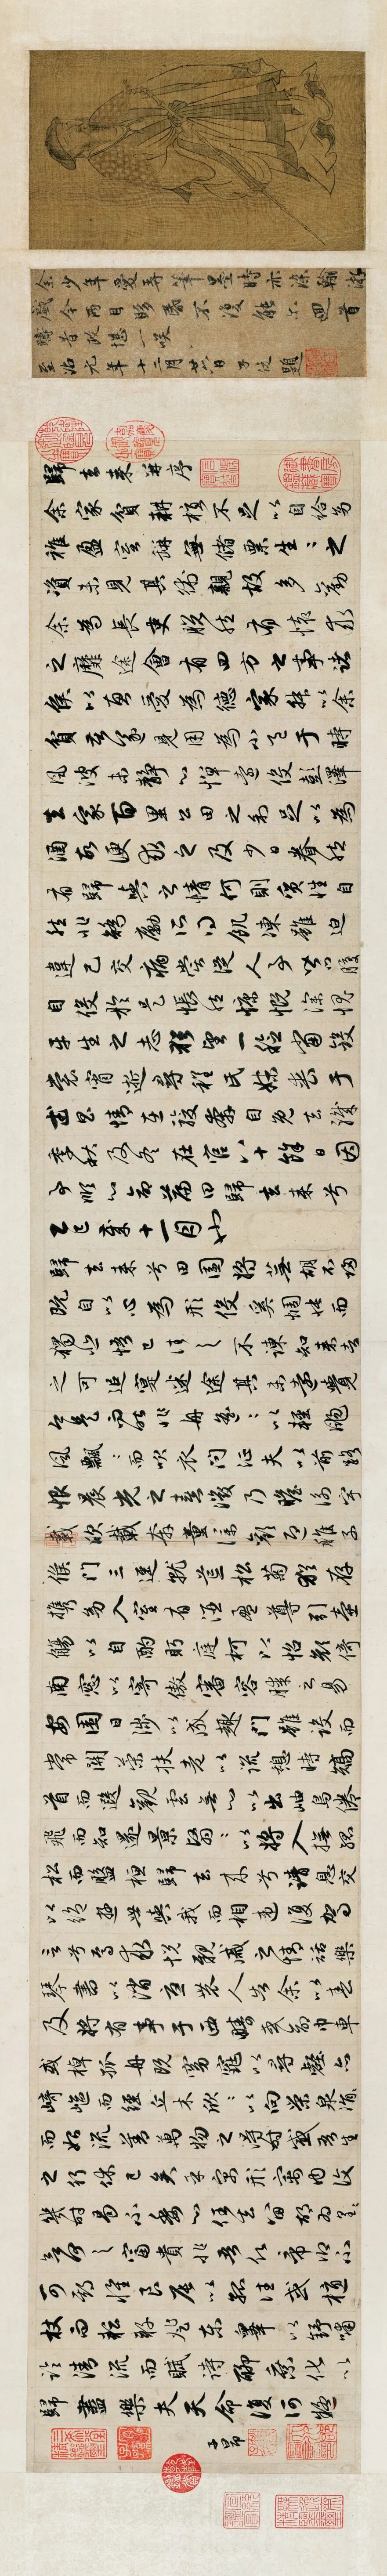 余少年愛弄筆墨時亦
戲今兩目眵昏不復能尒迴首
疇昔政堪一咲
至治元年十二月廿六日子俊題
歸去來并序
余家貧耕植不足以自給幼
稚盈室缾無儲粟生〻之
資未見其術親故多勸
余為長吏脫然有懷求
之靡途會有四方之事諸
侯以惠愛為德家叔以余
貧苦遂見用為小邑于時
風波未靜心憚遠役彭澤
去家百里公田之利足以為
酒故便求之及少日眷然
有歸與之情何則質性自
然非矯勵所得飢凍雖切
違己交病嘗從人事皆口腹
自役於是悵然慷慨深愧
平生之志猶望一稔當斂
裳宵逝尋程氏妹喪于
武昌情在駿奔自免去職
季秋及冬在官八十餘日因
事順心命篇曰歸去來兮
乙巳歲十一月也
歸去來兮田園將蕪胡不歸
既自以心為形役奚惆悵而
獨悲悟已往之不諫知來者
之可追寔迷途其未遠覺
今是而昨非舟遙〻以輕颺
風飄〻而吹衣問征夫以前路
恨晨光之熹微乃瞻衡宇
載欣載奔童僕歡迎稚子
候門三逕就荒松菊猶存
攜幼入室有酒盈尊引壺
觴以自酌眄庭柯以怡顏倚
南窓以寄傲審容膝之易
安園日涉以成趣門雖設而
常關策扶老以流憩時矯
首而遐觀雲無心以出岫鳥倦
飛而知還景翳〻以將入撫孤
松而盤桓歸去來兮請息交
以絕遊世與我而相違復駕
言兮焉求悅親戚之情話樂
琴書以消憂農人告余以春
及將有事于西疇或命巾車
或棹孤舟既窈窕以尋壑亦
崎嶇而經丘木欣〻以向榮泉涓〻
而始流善萬物之得時感吾生
之行休已矣乎寓形宇內復
幾時曷不委心任去留胡為遑遑
欲何之富貴非吾願帝鄉不
可期懷良辰以孤往或植
杖而耘耔登東皋以舒嘯
臨清流而賦詩聊乘化以
歸盡樂夫天命復何疑
子昂